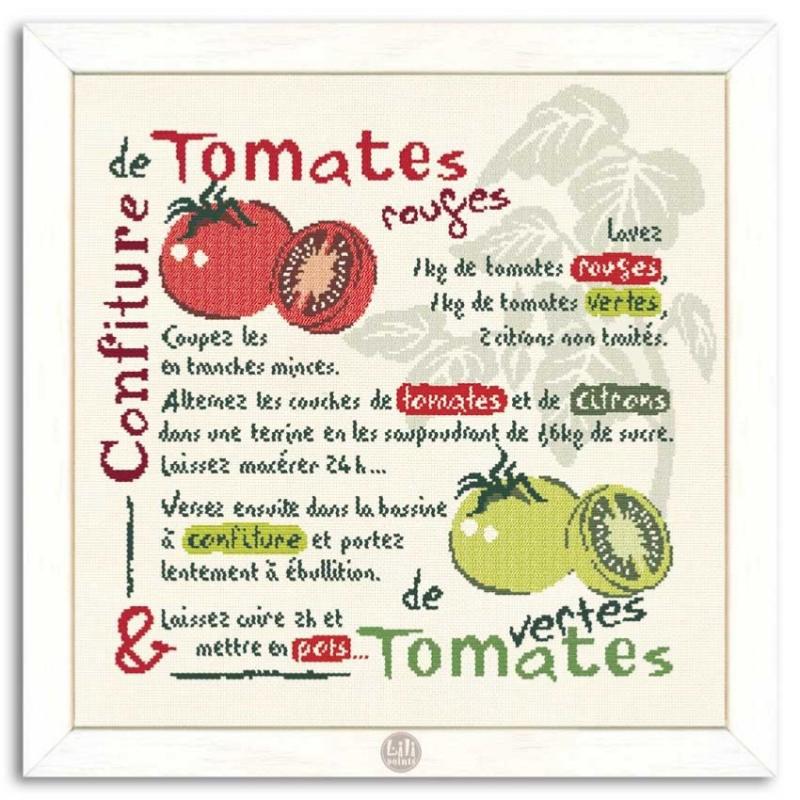 Confiture
de Tomates
rouges
Lavez
1kg de tomates rouges,
1kg de tomates vertes,
2 citrons non traités.
Coupez les
en tranches minces.
Alternez les couches de tomates et de citrons
dans une terrine en les saupoudrant de 1,6kg de sucre.
Laissez macérer 24h...
Versez ensuite dans la bassine
à confiture et portez
lentement à ébullition.
Laissez cuire 2h et
mettre en pots...
&
de
Tomates
vertes
Lili
points